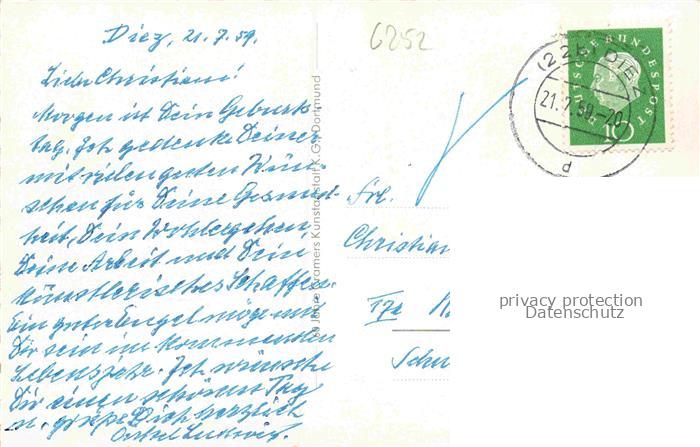 Diez, 21.7.59.
6252
Liebe Christiane!
Morgen ist Dein Geburts-
tag. Ich gedenke Deiner
mit vielen guten Wün-
schen für Deine Gesund-
heit, Dein Wohlergehen,
Deine Arbeit und Dein
künstlerisches Schaffen.
Ein guter Engel möge mit
Dir sein im kommenden
Lebensjahr. Ich wünsche
Dir einen schönen Tag
u. grüße Dich herzlich
Onkel Ludwig.
Jahre Kramers Kunstanstalt K.G., Dortmund
DEUTSCHE BUNDESPOST
10
DIEZ
21.7.59-20
d
Frl.
Christian
17a
Schu
privacy protection
Datenschutz